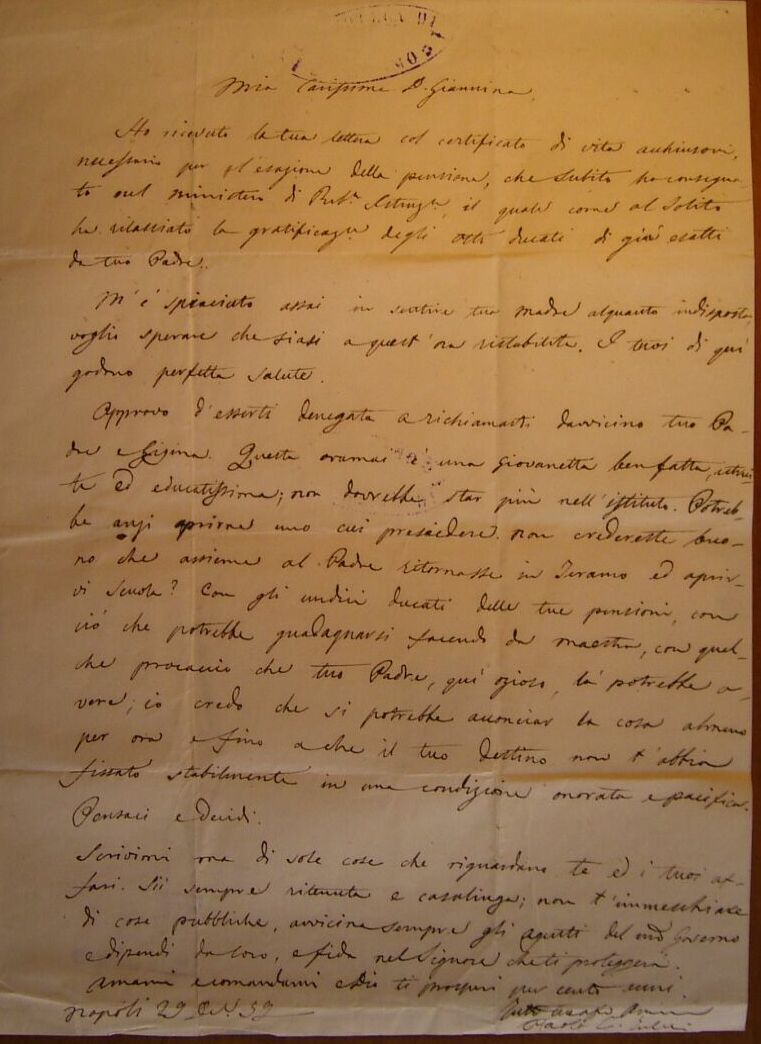 Mia Carissima D. Giannina
Ho ricevuto la tua lettera col certificato di vita acchiusovi,
necessario per l'esazione della pensione, che subito ho consegna-
to nel ministero di il quale come al solito
ha rilasciato la degli otto ducati di già esatti
da tuo Padre.
M'è spiaciuto assai in sentire tua madre alquanto indisposta,
voglio sperare che siasi a quest'ora ristabilita. I tuoi di quì
godono perfetta salute.
Approvo d'esserti denegata a richiamarti davvicino tuo Pa-
dre e Gigina. Questa oramai è una giovanetta benfatta, istrui-
ta ed educatissima; non dovrebbe star più nell'istituto. Potreb-
be anzi aprirne uno cui presiedere. non crederesti buo-
no che assieme al Padre ritornasse in Teramo ed aprir-
vi scuola? Con gli undici ducati delle tue pensioni, con
ciò che potrebbe guadagnarsi facendo da maestra, con qual-
che procaccio che tuo Padre, quì ozioso, là potrebbe a-
vere; io credo che si potrebbe acconciar la cosa almeno
per ora e fino a che il tuo destino non t'abbia
fissato stabilmente in una condizione onorata e pacifica.
Pensaci e decidi.
Scrivimi ora di sole cose che riguardano te ed i tuoi af-
fari. Sii sempre ritenuta e casalinga; non t'immischiare
di cose pubbliche, avvicina sempre gli agenti del Governo
e dipendi da loro, e fida nel Signore che ti proteggerà.
Amami e comandami e Dio ti prosperi per cento anni.
Napoli 29 59